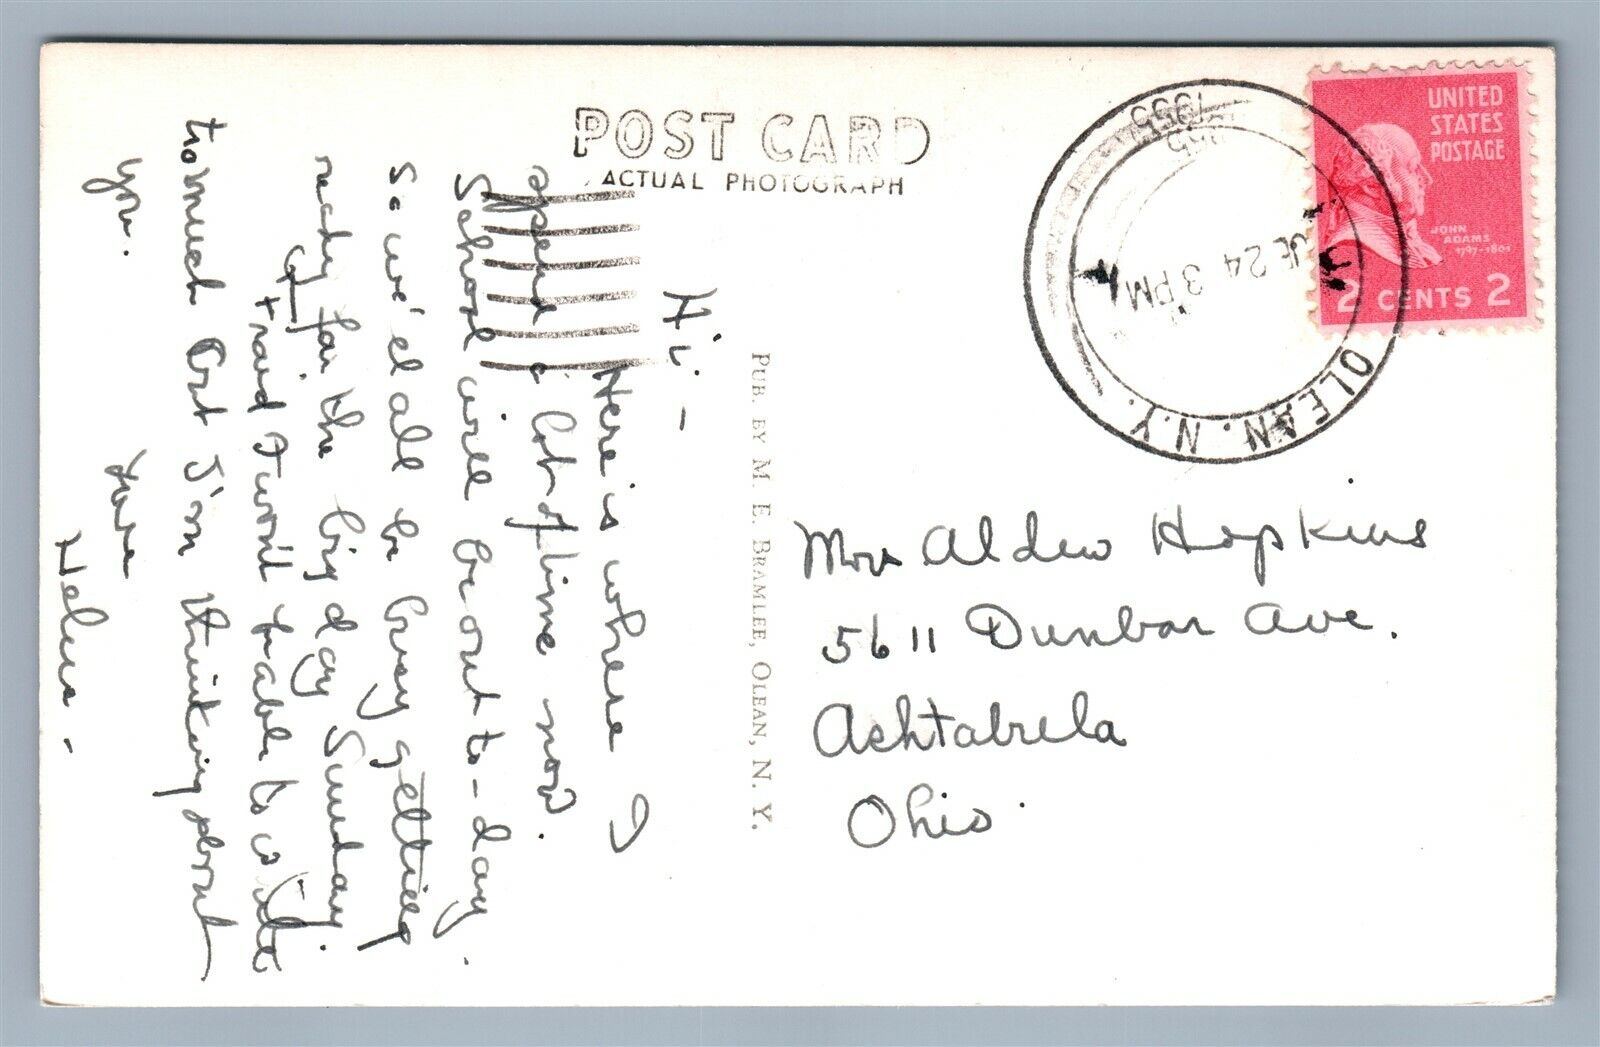 POST CARD
ACTUAL PHOTOGRAPH
UNITED
STATES
POSTAGE
JOHN
ADAMS
1797-1801
2 CENTS 2
OLEAN, N.Y.
24
3 PM
1955
Hi-
Here is where I
spend a lot of time now.
School will be out to-day.
So we'el all be busy getting
ready for the big day Sunday.
I won't be able to write
to much But I'm thinking about
you.
Love
Helen-
PUB. BY M. E. BRAMLEE, OLEAN, N. Y.
Mrs Alden Hopkins
5611 Dunbar Ave.
Ashtabula
Ohio.